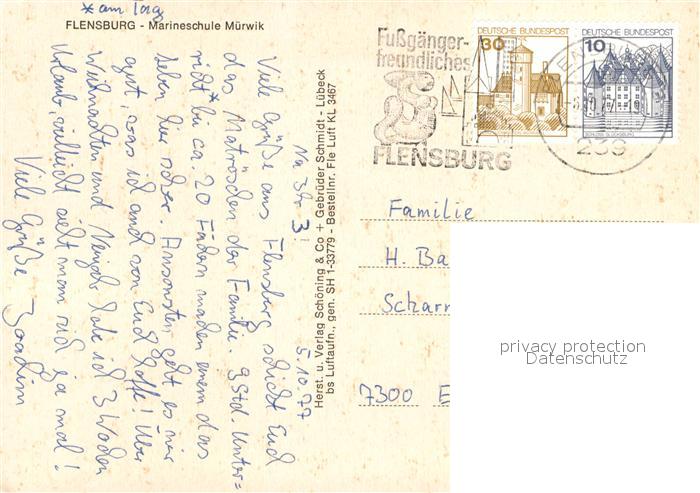 *am Tag
FLENSBURG - Marineschule Mürwik
Fußgänger-
freundliches
FLENSBURG
30
DEUTSCHE BUNDESPOST
10
DEUTSCHE BUNDESPOST
SCHLOSS GLÜCKSBURG
239
5.10.77
Viele Grüße aus Flensburg schickt Euch
das Matröschen der Familie. 9 Std. Unter=
richt* bis ca. 20 Fächern machen einem das
Leben hier schwer. Ansonsten geht es mir
gut, was ich auch von Euch hoffe! Über
Weihnachten und Neujahr habe ich 3 Wochen
Urlaub, vielleicht sieht man sich ja mal!
Viele Grüße
Joachim
Herst. u. Verlag Schöning & Co + Gebrüder Schmidt - Lübeck
bs Luftaufn., gen. SH 1-33779 - Bestellnr. Fle Luft KL 3467
Familie
H. Ba
Scharn
7300 E
privacy protection
Datenschutz